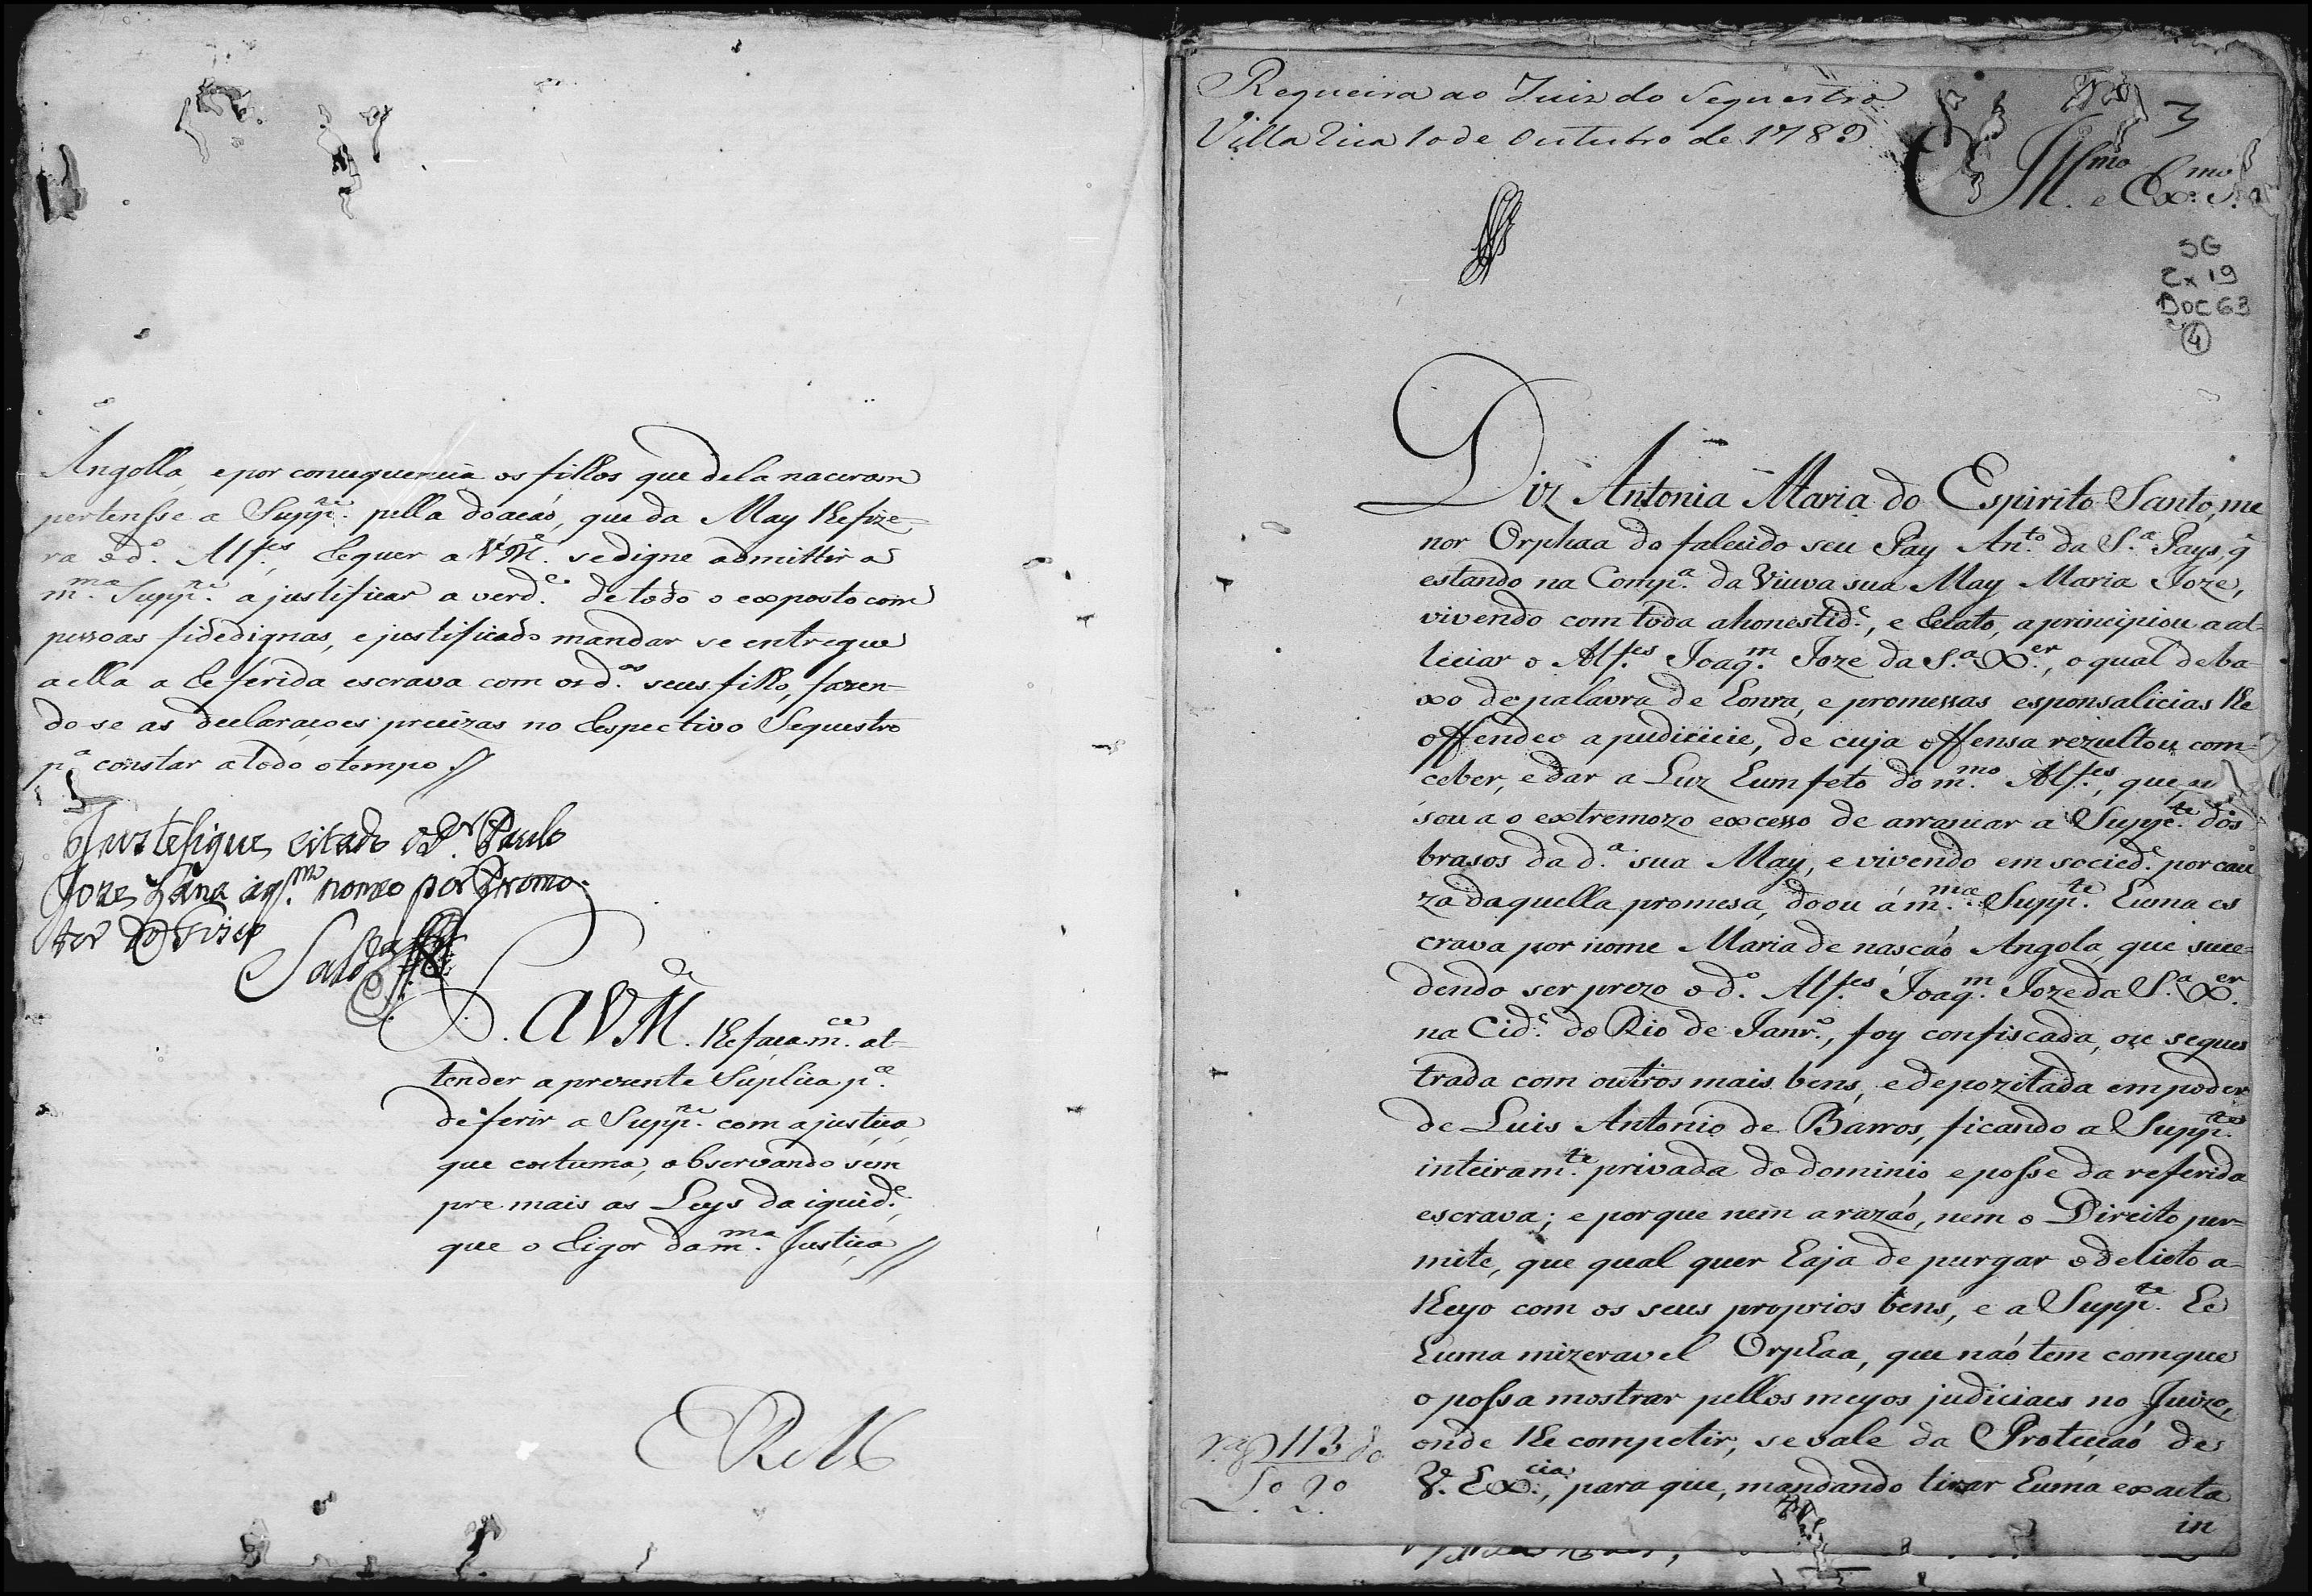 Angolla, e por conuquencia os fillos que dela naceram
pertenſse a Supp.te pella doação, que da May lhe fize-
ra o d.º Alf.es, Requer a V.M.ce se digne admittir a
m.ma Supp.te a justificar a verd.e de todo o exposto com
pessoas fidedignas, e justificado mandar se entregue
a ella a Referida escrava com os d.os seus fillo, fazen-
do-se as declaraçoes preuizas no Respectivo Sequestro
p.a constar a todo o tempo //
Justefique, citado o D.r Paulo
Joze Lana aq.m nomeo por Promo-
tor do Fisco
Sald.a
P. A V.M.ce lhe faça m.ce at-
tender a prezente Suplica p.a
deferir a Supp.te com a justiça
que costuma, observando sem
pre mais as Leys da iquid.e,
que o Rigor da m.ma Justiça //
E R M
Requeira ao Juiz do Sequestro
Villa Rica 10 de Outubro de 1789
3
Ill.mo e Ex.mo S.r
SG
Cx 19
Doc 63
4
Diz Antonia Maria do Espirito Santo, me
nor Orphaa do falecido seu Pay An.to da S.a Pays, q̃
estando na Comp.a da Viuva sua May Maria Joze,
vivendo com toda a honestid.e, e Recato, a principiou a al-
liciar o Alf.es Joaq.m Joze da S.a X.er, o qual deba-
xo de palavra de honra, e promessas esponsalicias lhe
offendeo a pudicicie, de cuja offensa rezultou com-
ceber, e dar a Luz hum feto do m.mo Alf.es, que pa
sou a o extremozo excesso de arrancar a Supp.te dos
brasos da d.a sua May, e vivendo em socied.e por cau
za daquella promesa, doou á m.ma Supp.te huma es
crava por nome Maria de nascáo Angola, que suce-
dendo ser prezo o d.º Alf.es Joaq.m Joze da S.a X.er
na Cid.e do Rio de Janr.º, foy confiscada, ou seques
trada com outros mais bens, e depozitada em poder
de Luis Antonio de Barros, ficando a Supp.te
inteiram.te privada do dominio, e poſse da referida
escrava; e porque nem a razáo, nem o Direito per-
mite, que qual quer haja de purgar o delicto a-
lheyo com os seus proprios bens, e a Supp.te he
huma mizeravel Orphaa, que náo tem com que
o poſsa mostrar pellos meyos judiciaes no Juizo,
onde lhe competir, se vale da Proteçáo de
V. Ex.cia, para que, mandando tirar huma exacta
in
113
L.º 2.º